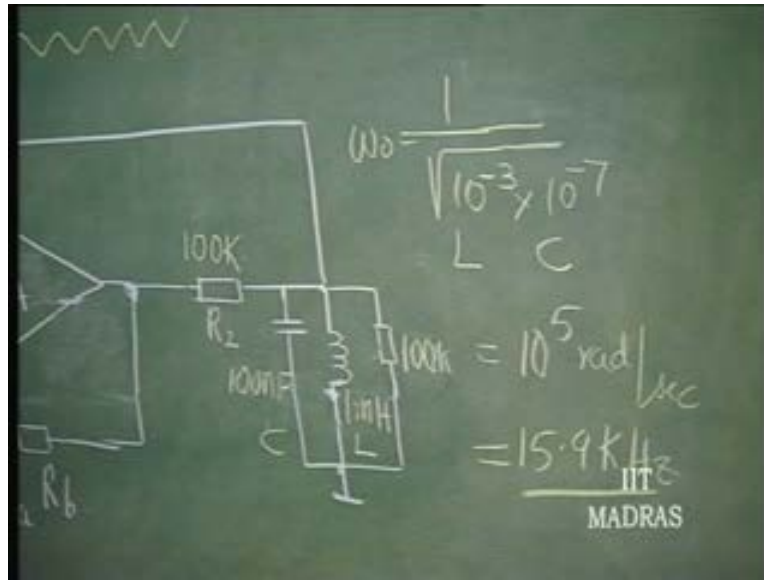 ω0 = 1
√10-3 x 10-7
L C
100K
R2
100nF
C
1mH
L
100k
= 10 5 rad/sec
= 15.9 KHz
Rb
IIT
MADRAS